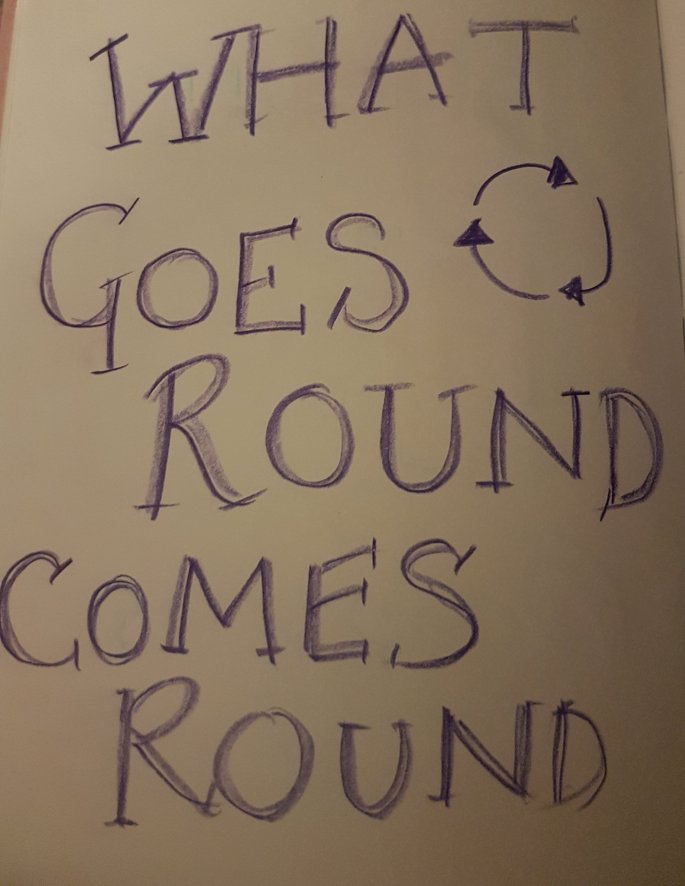 WHAT
GOES
ROUND
COMES
ROUND